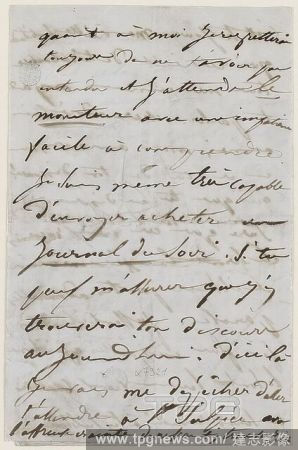 quant à moi je regretterai
toujours de ne t'avoir pas
entendu et j'attends le
moniteur avec une impatience
facile à comprendre
Je suis même très capable
d'envoyer acheter un
Journal du Soir. Si tu
peux m'assurer que j'y
trouverai ton discours
aujourd'hui. d'ici là
Je vais me dépêcher d'aller
t'attendre à
α 7921
TPG
www.tpgnews.com/達志影像